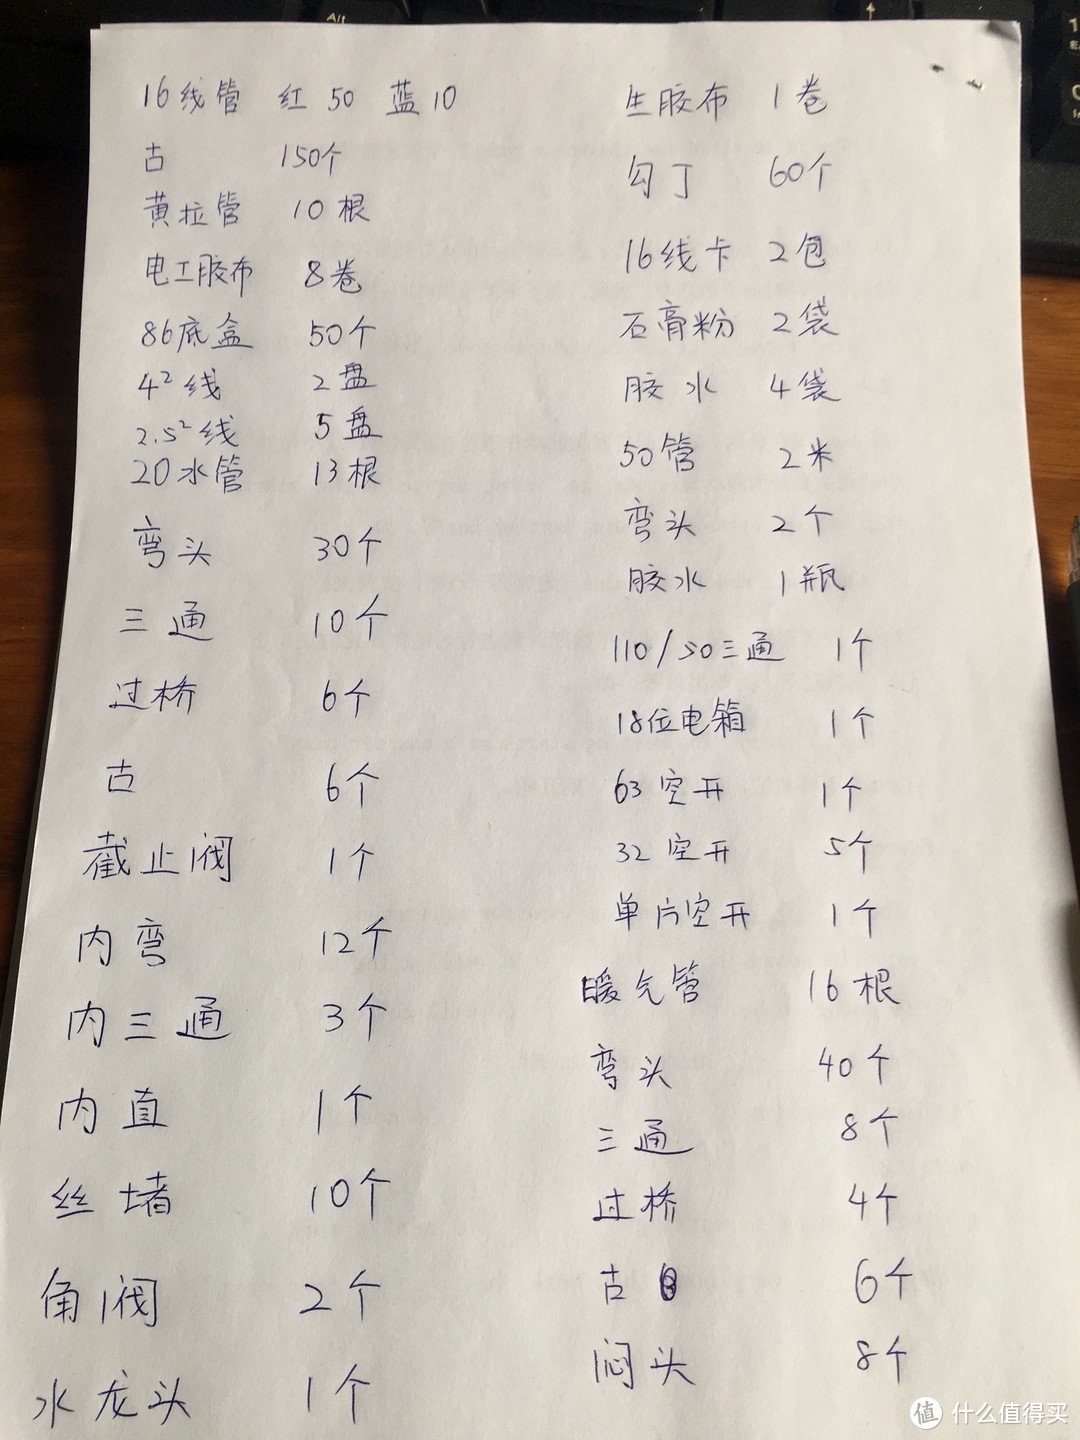 16线管 红50 蓝10
古 150个
黄拉管 10根
电工胶布 8卷
86底盒 50个
4² 线 2盘
2.5² 线 5盘
20水管 13根
弯头 30个
三通 10个
过桥 6个
古 6个
截止阀 1个
内弯 12个
内三通 3个
内直 1个
丝堵 10个
角阀 2个
水龙头 1个
生胶布 1卷
勾丁 60个
16线卡 2包
石膏粉 2袋
胶水 4袋
50管 2米
弯头 2个
胶水 1瓶
110/50三通 1个
18位电箱 1个
63空开 1个
32空开 5个
单片空开 1个
暖气管 16根
弯头 40个
三通 8个
过桥 4个
古 6个
闷头 8个
值 什么值得买